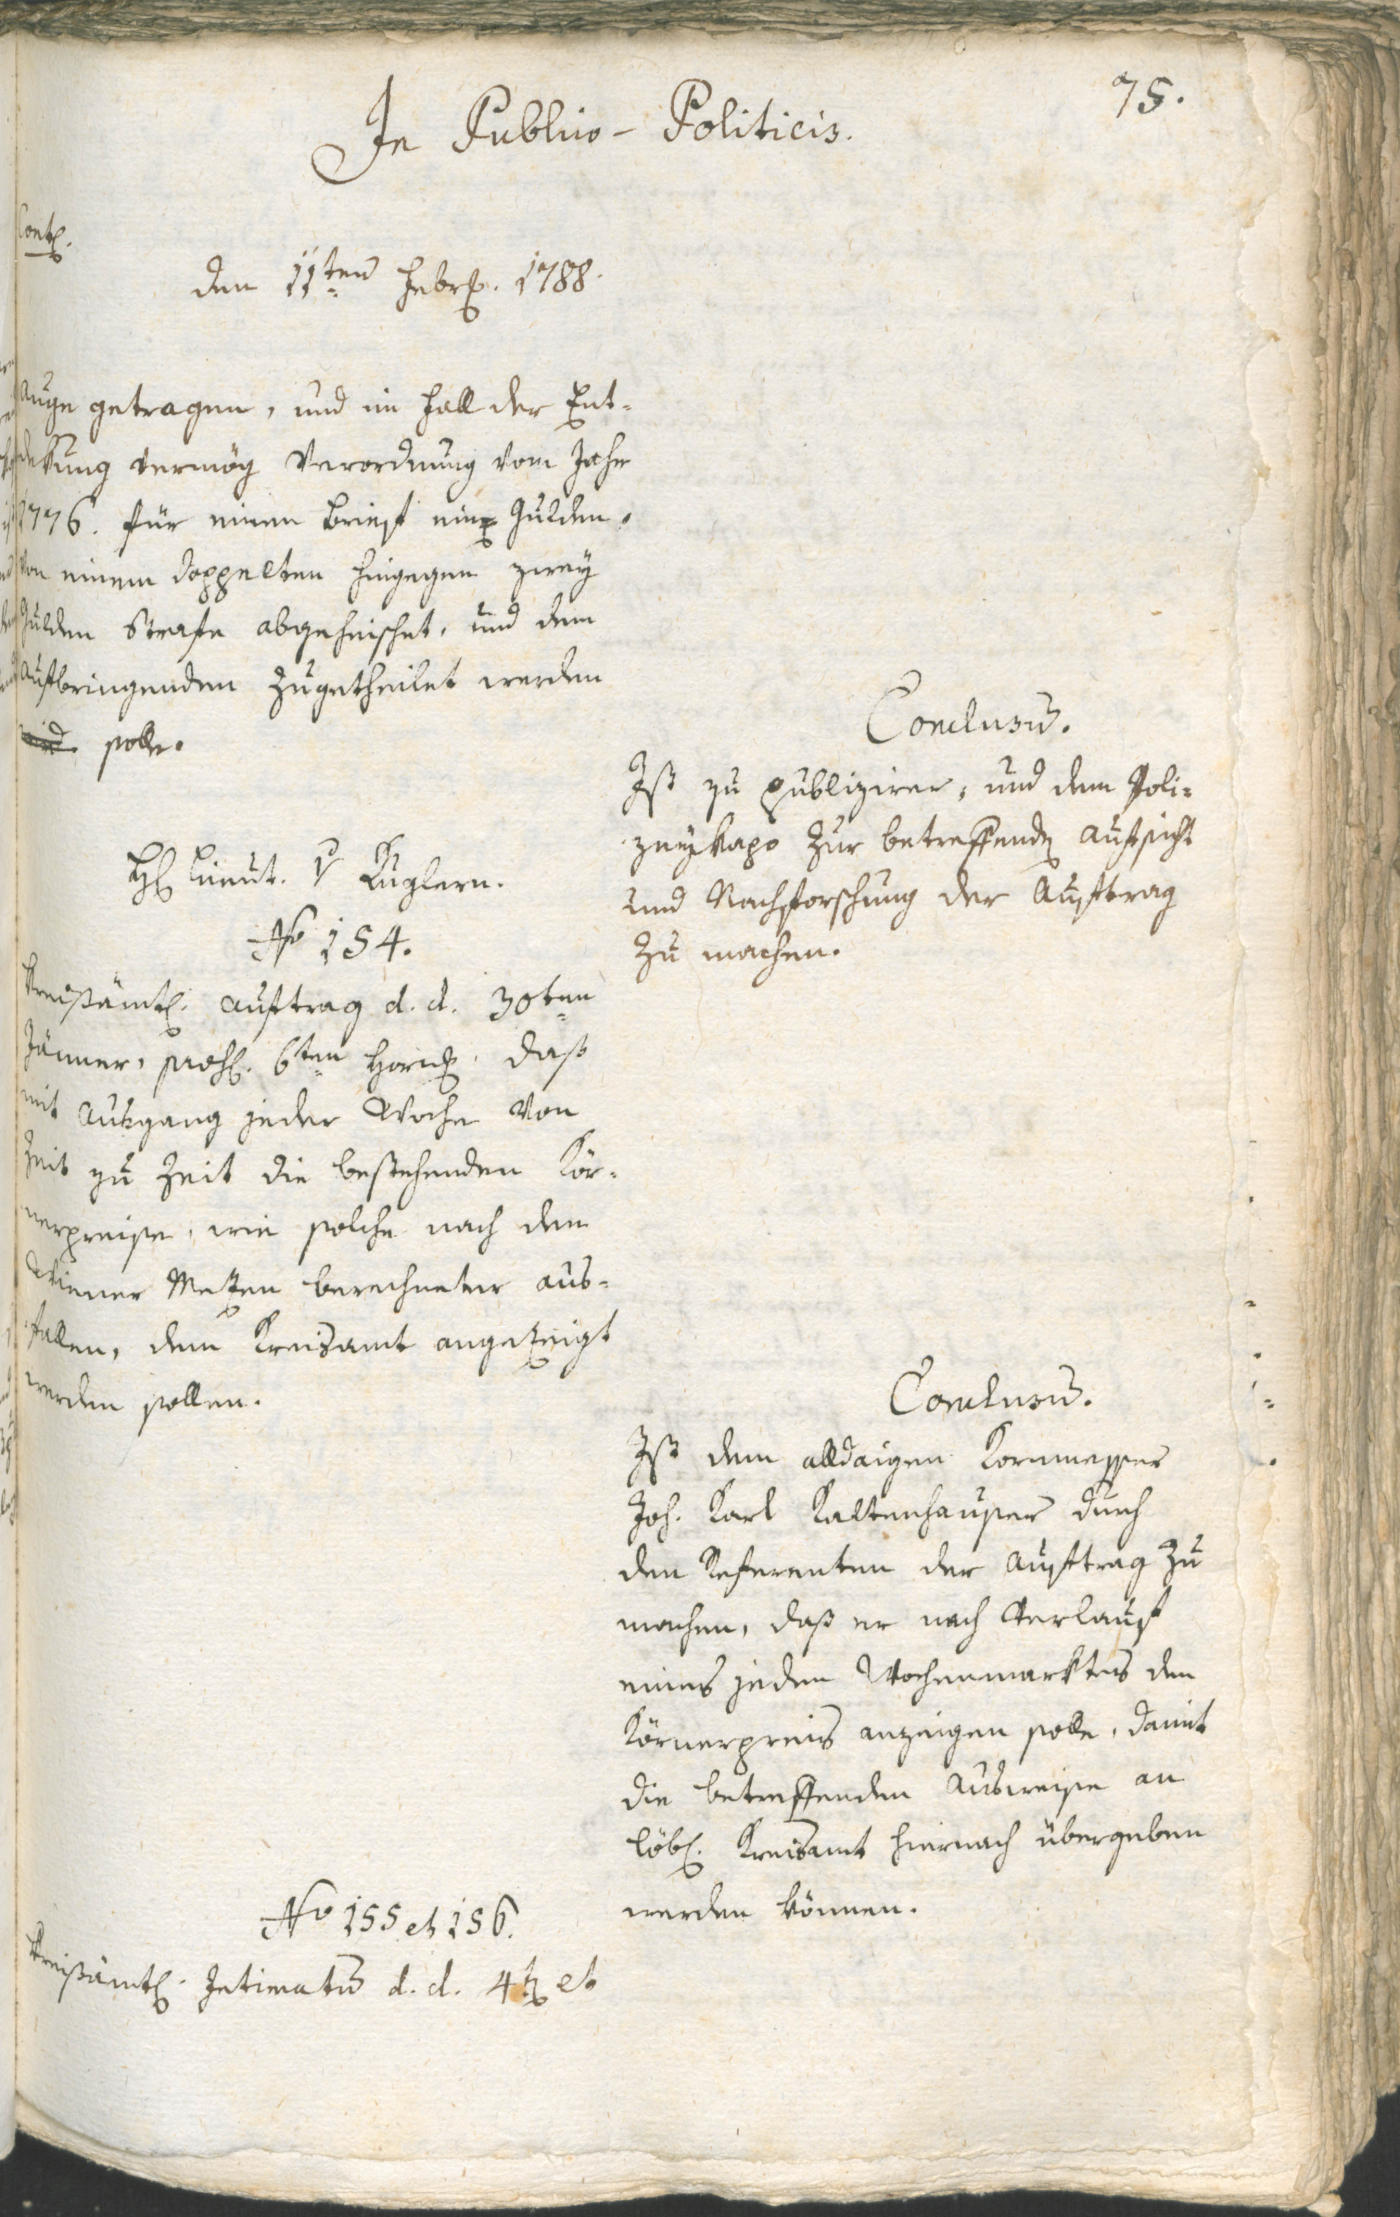 75.
In Publico-Politicis.
Cont.
den 11ten Febr. 1788.
Auge getragen, und im Fall der Ent-
dekung vermög Verordnung vom Jahr
1776. für einen Brief ein Gulden,
von einem doppelten hingegen zwey
Gulden Strafe abgeheischet, und dem
Aufbringenden zugetheilet werden
solle.
Conclusum.
Ist zu publiziren, und dem Poli-
zeykapo zur betreffenden Aufsicht
und Nachforschung der Auftrag
zu machen.
H Lieut. v Kuglern.
No 154.
Kreisämtl. Auftrag d. d. 30ten
Jänner, 6ten Horn. daß
mit Ausgang jeder Woche von
Zeit zu Zeit die bestehenden Kör-
nerpreise, wie solche nach dem
Wiener Metzen berechneter aus-
fallen, dem Kreisamt angezeigt
werden sollen.
Conclusum.
Ist dem alldaigen Kornmesser
Joh. Karl Kaltenhauser durch
den Referenten der Auftrag zu
machen, daß er nach Verlauf
eines jeden Wochenmarktes den
Körnerpreis anzeigen solle, damit
die betreffenden Ausweise an
löbl. Kreisamt hiernach übergeben
werden können.
No 155 et 156.
Kreisämtl. Intimatum d. d. 4t et